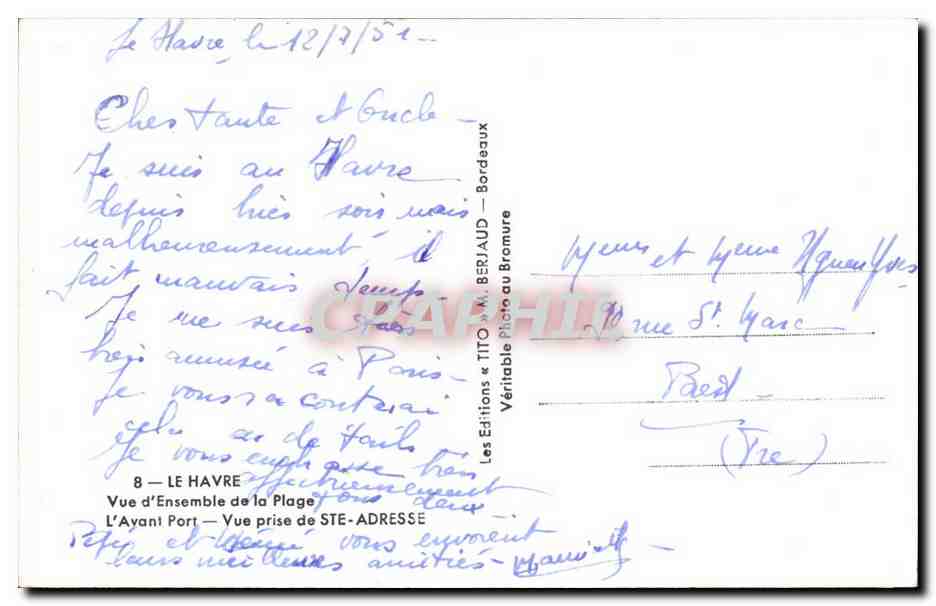 Le Havre, le 12/7/51
Chers tante et Oncle
Je suis au Havre
depuis hier soir mais
malheureusement, il
fait mauvais temps
Je me suis très
bien amusée à Paris
Je vous racontrai
cela en détails
Je vous embrasse très
affectueusement
tous deux
Pépé et Mémé vous envoient
leurs meilleures amitiés
8 — LE HAVRE
Vue d'Ensemble de la Plage
L'Avant Port — Vue prise de STE-ADRESSE
Les Editions « TITO » M. BERJAUD — Bordeaux
Véritable Photo au Bromure
CPAPHIL
et Mme
90 rue St Marc
Brest
(Fre)